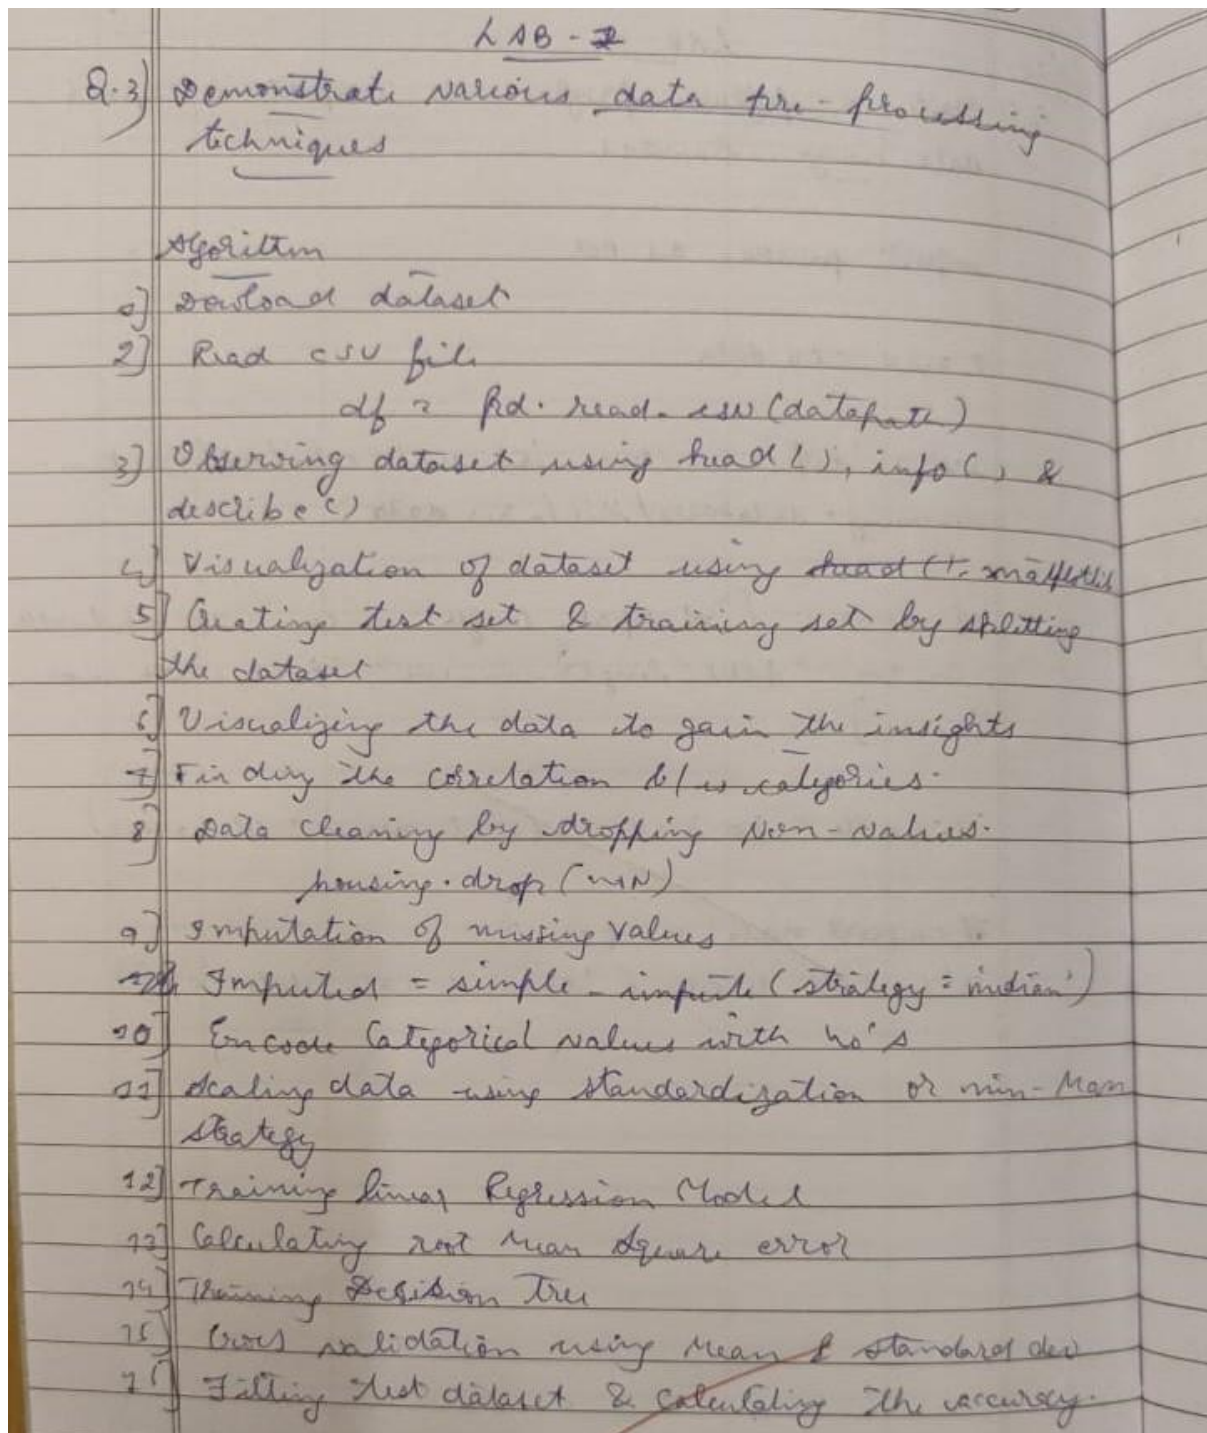 LAB - 2
Q.3) Demonstrate various data pre-processing
techniques
Algorithm
1] Download dataset
2] Read csv file
df = pd.read_csv(datapath)
3] Observing dataset using head(), info() &
describe()
4] Visualization of dataset using head() matplotlib
5] Creating test set & training set by splitting
the dataset
6] Visualizing the data to gain the insights
7] Finding the correlation b/w categories.
8] Data cleaning by dropping Non-values.
housing.drop(NAN)
9] Imputation of missing values
Imputed = simple_impute(strategy = 'median')
10] Encode Categorical values with no's
11] Scaling data using standardization or min-Max
strategy
12] Training linear Regression Model
13] Calculating root mean square error
14] Training Decision Tree
15] Cross validation using Mean & standard dev
16] Fitting test dataset & calculating the accuracy.